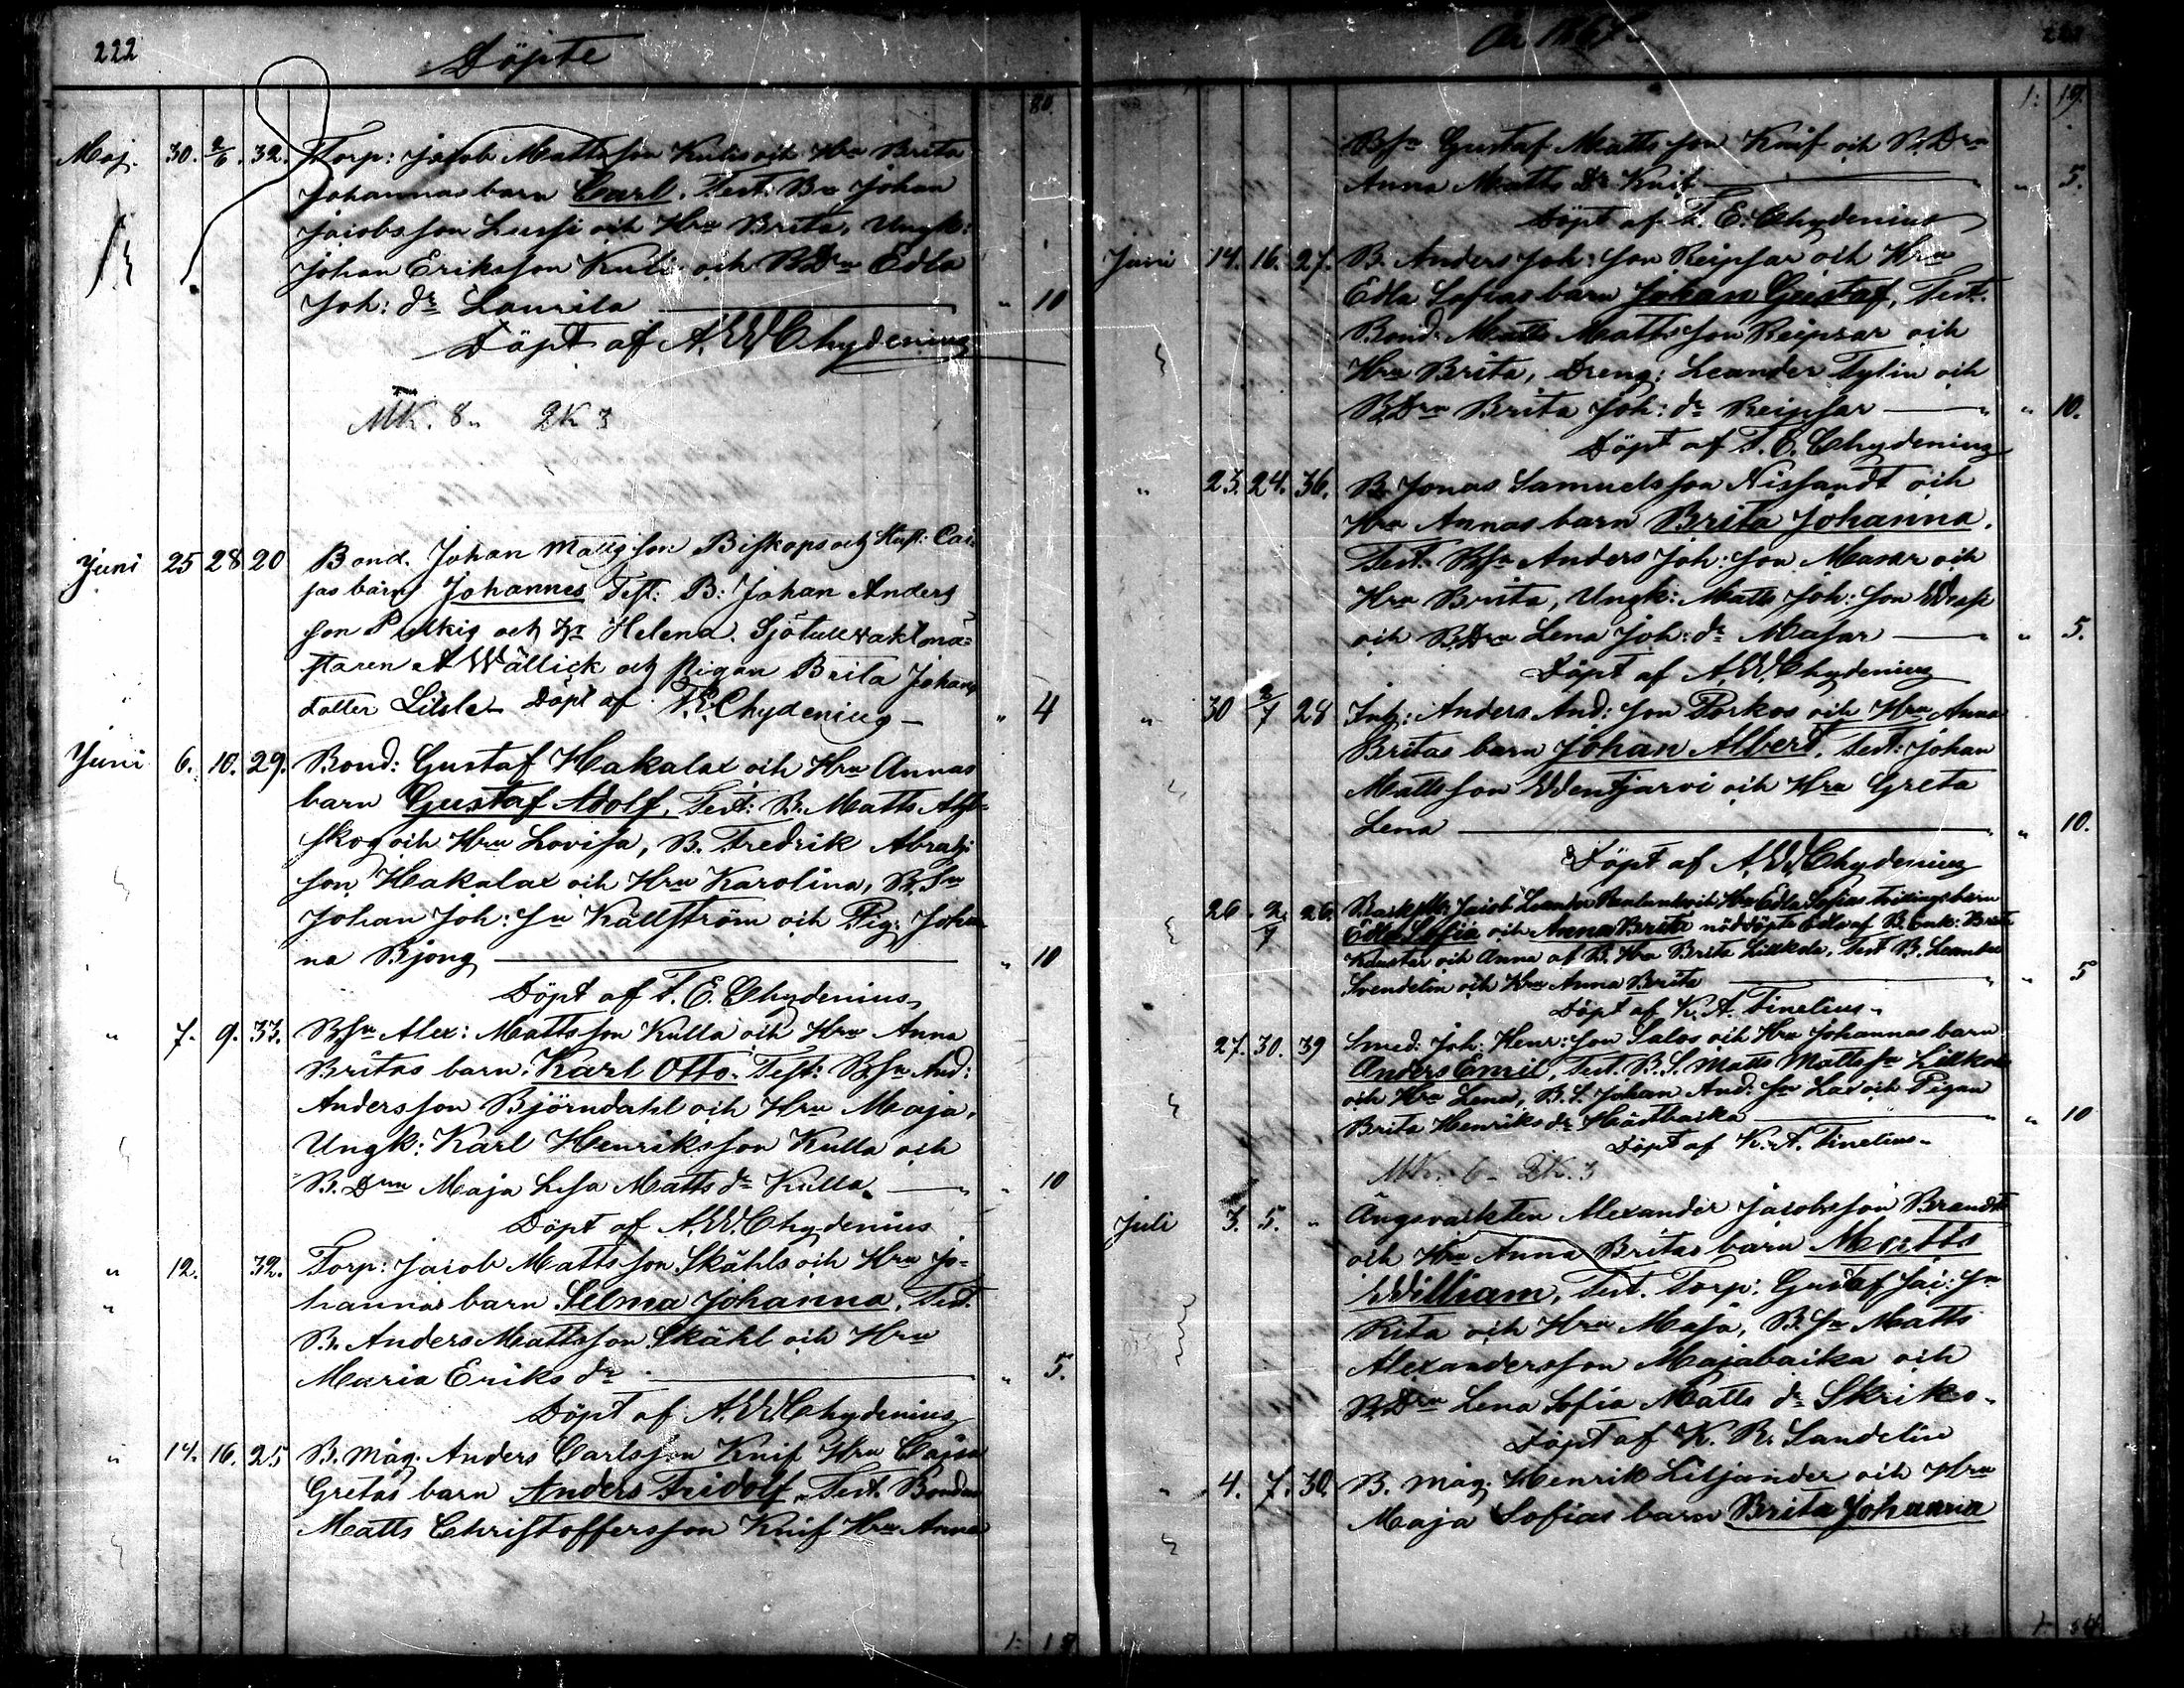 222
Döpte
80.
Maj. 30. 2/6. 32. Torp: Jacob Mattsson Kulis och Hru Brita
Johannas barn Carl. Test. Bn Johan
Jacobsson Lussi och Hru Brita, Ungk:
Johan Eriksson Kuli och B.Drn Edla
Joh: dr Laurila — " 10
Döpt af A.W.Chydenius
MK. 8 " QK 3
Juni 25 28 20 Bond. Johan Mattsson Biskops och Hust: Cai-
sas barn Johannes Test: B: Johan Anders
son Pelkis och Hu Helena. Sjötullvaktmä-
staren A Wällick och Pigan Brita Johans
dotter Lisle - Döpt af F.E.Chydenius - " 4
Juni 6. 10. 29. Bond: Gustaf Hakalax och Hru Annas
barn Gustaf Adolf. Test: B. Matts
skog och Hru Lovisa, B. Fredrik Abrah:
son Hakalax och Hru Karolina, B.Sn
Johan Joh: Sn Källström och Pig: Johan
na Bjong — " 10
Döpt af F. E. Chydenius
" 7. 9. 33. B.Sn Alex: Mattsson Kulla och Hru Anna
Britas barn: Karl Otto. Test: B.Sn And:
Andersson Björndahl och Hru Maja.
Ungk: Karl Henriksson Kulla och
B. Drn Maja Lisa Matts dr Kulla. — " 10
Döpt af A.W.Chydenius
" 12. 32. Torp: Jacob Mattsson Skåhls och Hru Jo-
" hannas barn Selma Johanna, Test.
B. Anders Mattsson Skåhl och Hru
Maria Eriks dr — " 5.
Döpt af A.W.Chydenius
" 14. 16. 25 B. Måg. Anders Carlsson Knif Hru Cajsa
Gretas barn Anders Fridolf. Test. Bonden
Matts Christoffersson Knif Hru Anna
1: 19
År 1867
223
1: 19.
B.Sn Gustaf Mattsson Knif och B.Drn
Anna Matts Dr Knif — " 5.
Döpt af F. E. Chydenius
Juni 14. 16. 27. B. Anders Joh: Son Reipsar och Hru
Edla Sofias barn Johan Gustaf, Test.
Bond: Matts Mattsson Reipsar och
Hru Brita, Dreng: Leander Tylin och
B.Drn Brita Joh: dr Reipsar — " 10.
Döpt af F. E. Chydenius
" 23. 24. 36. B. Jonas Samuelsson Nissandt och
Hru Annas barn Brita Johanna.
Test. B.Sn Anders Joh: Son Masar och
Hru Brita, Ungk: Matts Joh: Son
och B.Drn Lena Joh: dr Masar — " 5.
Döpt af A.W.Chydenius
" 30 2/7 28 Inh: Anders And: Son Porkos och Hru Anna
Britas barn Johan Albert. Test: Johan
Mattsson Wentjärvi och Hru Greta
Lena — " 10.
Döpt af A.W.Chydenius
26. 2/7 26. Jacob Leander och Hru Edla Sofias tvillingsbarn
Edla Sofia och Anna Brita nöddöpte Edla af B. Enk: Brita
Kaustar och Anna af B. Hru Brita Lillkola, Test B. Leander
Svendelin och Hru Anna Brita — " 5
Döpt af K. A. Finelius.
27. 30. 39 Smed: Joh: Henr: Son Salos och Hru Johannas barn
Anders Emil, Test. B.S. Matts Mattsn Lillkola
och Hru Lena, B.S. Johan And: Sn Lax och Pigan
Brita Henriks dr Hästbacka — " 10
Döpt af K. A. Finelius.
MK. 6 - QK. 3
Juli 3. 5. " Ängsvakten Alexander Jacobsson Brandt
och Hru Anna Britas barn Matts
William, Test. Torp: Gustaf Jac: Sn
Rita och Hru Maja, B.Sn Matts
Alexandersson Majabacka och
B.Drn Lena Sofia Matts dr Skriko.
Döpt af K. R. Sandelin
" 4. 7. 30. B. Måg: Henrik Liljander och Hru
Maja Sofias barn Brita Johanna
1: